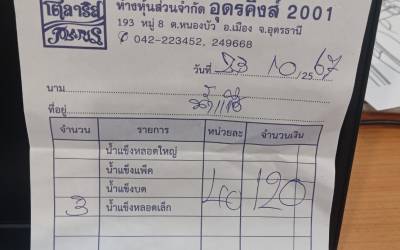 ห้างหุ้นส่วนจำกัด อุดรคิงส์ 2001
193 หมู่ 8 ต.หนองบัว อ.เมือง จ.อุดรธานี
042-223452, 249668
วันที่ 23 10 2567
นาม
ที่อยู่
จำนวน รายการ หน่วยละ จำนวนเงิน
น้ำแข็งหลอดใหญ่
น้ำแข็งแพ็ค
น้ำแข็งบด
3 น้ำแข็งหลอดเล็ก 40 120